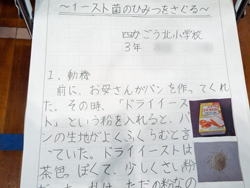 ～イースト菌のひみつをさぐる～
四かごう北小学校
3年
1．動機
前に、お母さんがパンを作ってくれ
た。その時、「ドライイース
ト」という粉を入れると、パ
ンの生地がよくふくらむと言
っていた。ドライイーストは
茶色っぽくて、少しくさい粉